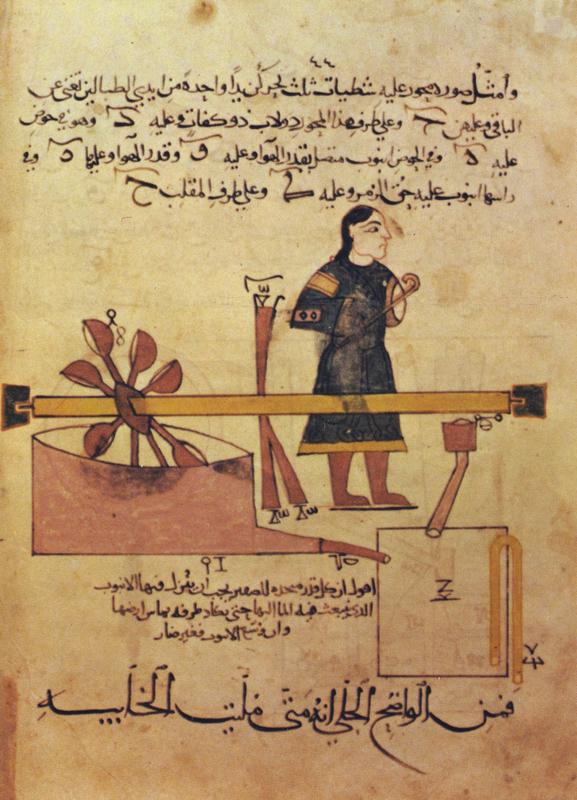 ٤٤
وأمثّل صورة محور عليه شظيات ثلث لتحركن يدًا واحدة من ايدي الطبالين تغني عن
الباقي وعليهن ح وعلى طرف هذا المحور دولاب ذو كفات وعليه د وهو في حوض
عليه ه وفي الحوض انبوب متصل بقدر الهوا وعليه و وقدر الهوا وعليها وفي
راسها انبوب عليه حق الزمر وعليه وعلى طرف المقلب ح
اقول ان كل قدر متخذه للصفير يجب ان ينزل فيها الانبوب
الذي ينبعث فيه الما اليها حتى يكاد طرفه يماس ارضها
وان وسع الانبوب فغير ضار
فمن الواضح الجلي انه متى ملئت الخابيه